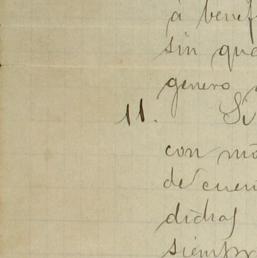 á benef
sin qu
genero
11. Si
con m
de cuen
dichas
siempr